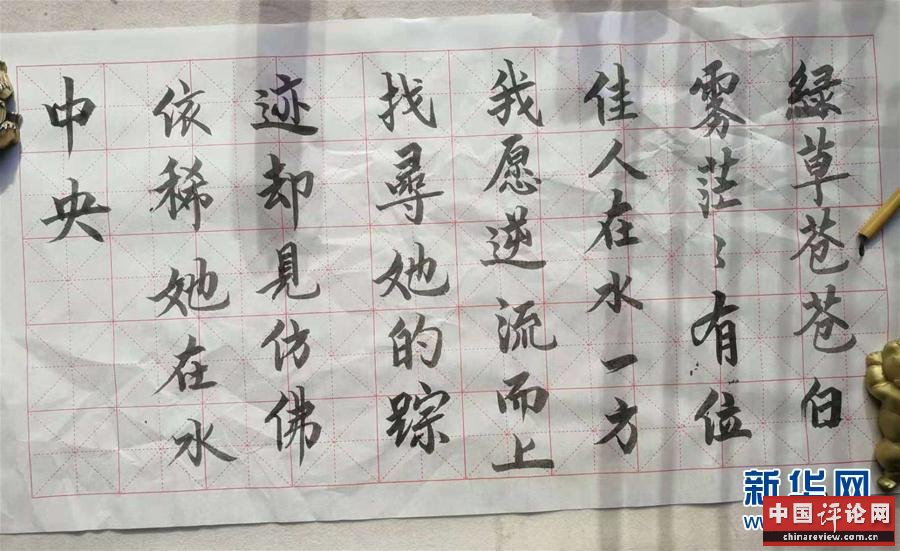 绿草苍苍白
雾茫々有位
佳人在水一方
我愿逆流而上
找尋她的踪
迹却見仿佛
依稀她在水
中央
新华网
WWW
中国评论网
chinareview.com.cn